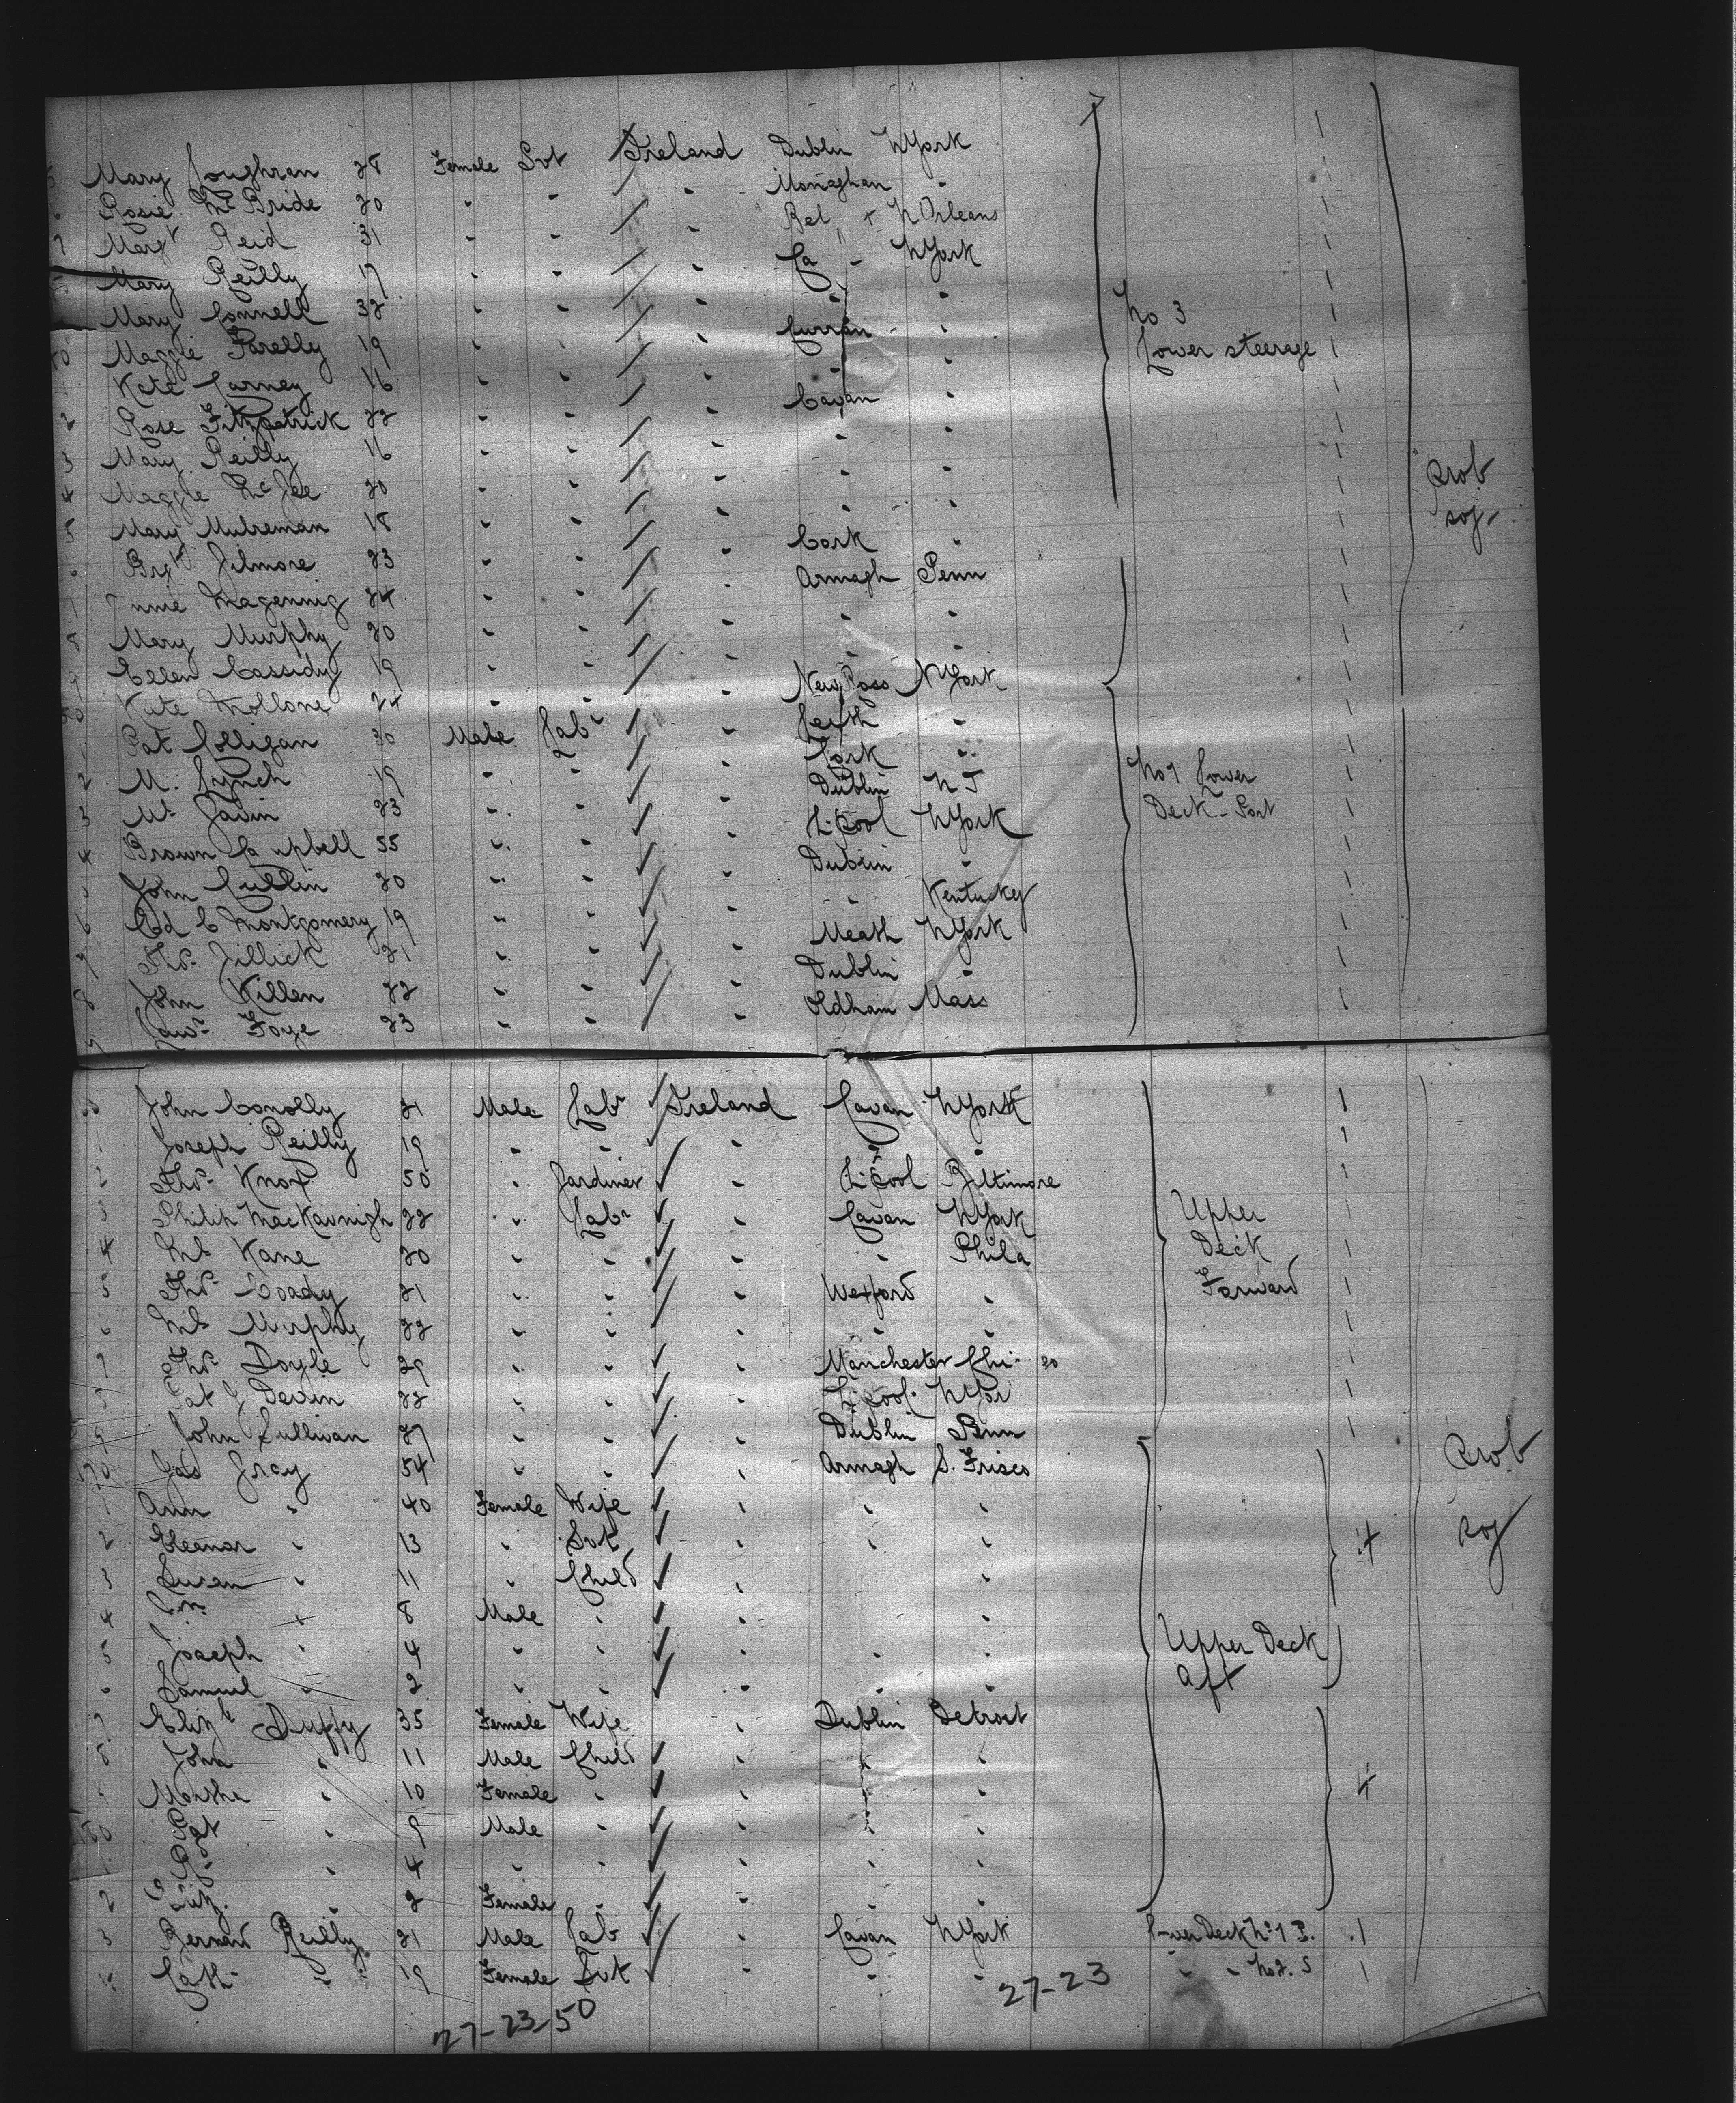 Mary Loughran 28 Female Svt Ireland Dublin NYork
Rosie McBride 20 " " " Monaghan "
Margt Reid 31 " " " Bel N Orleans
Mary Reilly 17 " " " Ca NYork
Mary Connell 32 " " " " "
Maggie Farelly 19 " " " Curran "
Kate Carney 16 " " " " "
Rose Fitzpatrick 22 " " " Cavan "
Mary Reilly 16 " " " " "
Maggie McGee 20 " " " " "
Mary Mulreman 18 " " " " "
Bgt Gilmore 23 " " " Cork "
Magennig 24 " " " Armagh Penn
Mary Murphy 20 " " " " "
Ellen Cassidy 19 " " " " "
Kate Mollone 24 " " " New Ross NYork
Pat Colligan 30 Male Labr " Leith "
M. Lynch 19 " " " Cork "
Mt Gavin 23 " " " Dublin N J
Brown Ca upbell 55 " " " L'pool NYork
John Cullin 20 " " " Dublin "
Ed C Montgomery 19 " " " " Kentucky
Thos Gillick 21 " " " Meath NYork
John Killen 22 " " " Dublin "
Lawr Foye 23 " " " Oldham Mass
No 3
Lower steerage
No 1 Lower
Deck - Port
Prob
soj
John Conolly 21 Male Labr Ireland Cavan NYork
Joseph Reilly 19 " " " " "
Thos Knox 50 " Gardiner " L'pool Biltimore
Philip MacKavnigh 22 " Labr " Cavan NYork
Ml Kane 20 " " " " Phila
Thos Coady 21 " " " Wexford "
Ml Murphy 22 " " " " "
Thos Doyle 29 " " " Manchester Chi
Pat J Devin 22 " " " L'pool NYor
John Sullivan 27 " " " Dublin Penn
Jas Gray 54 " " " Armagh S. Frisco
Ann " 40 Female Wife " " "
Eleanor " 13 " Svt " " "
Susan " 11 " Child " "
" 8 Male " " "
Joseph " 4 " " " " "
Samuel " 2 " " " " "
Elizth Duffy 35 Female Wife " Dublin Detroit
John " 11 Male Child " " "
Martha " 10 Female " " " "
Pat " 9 Male " " " "
" 4 " " " " "
Liz. " 2 Female " " " "
Bernard Reilly 21 Male Lab " Cavan NYork
Cath " 19 Female Svt " " "
Upper
Deck
Forward
Upper Deck
Aft
Deck No 1 P. 1
" " No 2. S 1
4
4
Prob
soj
27-23
27-23-50